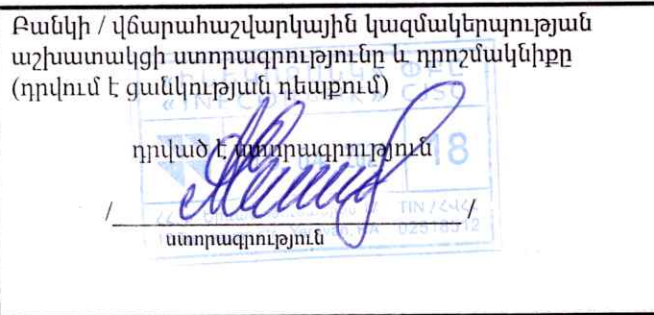 Բանկի / վճարահաշվարկային կազմակերպության
աշխատակցի ստորագրությունը և դրոշմակնիքը
(դրվում է ցանկության դեպքում)
CJSC
դրված է ստորագրություն
18
/ /
TIN / ՀՎՀՀ
ստորագրություն